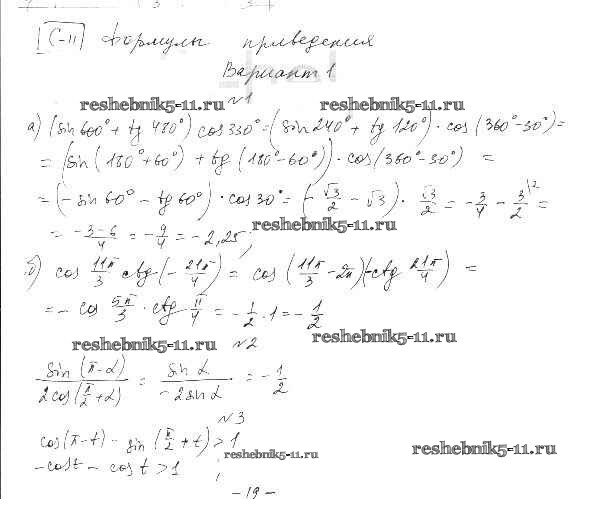 С-11 Формулы приведения
Вариант 1
reshebnik5-11.ru №1 reshebnik5-11.ru
а) (sin 600° + tg 480°) cos 330° = (sin 240° + tg 120°) · cos (360° - 30°) =
= (sin (180° + 60°) + tg (180° - 60°)) · cos (360° - 30°) =
= (- sin 60° - tg 60°) · cos 30° = (- √3/2 - √3) · √3/2 = - 3/4 - 3/2 |2 =
= (-3-6)/4 = - 9/4 = - 2,25;
reshebnik5-11.ru
б) cos 11π/3 ctg (- 21π/4) = cos (11π/3 - 2π)(-ctg 21π/4) =
= - cos 5π/3 · ctg π/4 = - 1/2 · 1 = - 1/2
reshebnik5-11.ru №2 reshebnik5-11.ru
sin (π - α) / 2cos (π/2 + α) = sin α / -2 sin α = - 1/2
№3
cos (π - t) - sin (π/2 + t) > 1
reshebnik5-11.ru reshebnik5-11.ru
- cos t - cos t > 1 ;
- 19 -